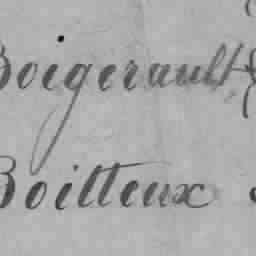 Boigerault
Boitteux